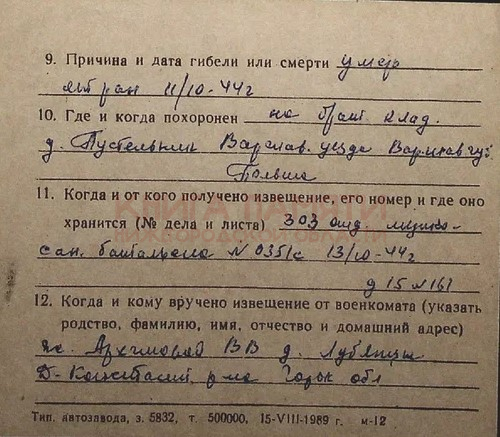 9. Причина и дата гибели или смерти умер
от ран 11/10-44г
10. Где и когда похоронен на брат. клад.
д. Пустельник Варшав. уезда Варшав губ
Польша
11. Когда и от кого получено извещение, его номер и где оно
хранится (№ дела и листа) 303 отд медико-
сан. баталиона N 0351с 13/10-44г
д 15 л 161
12. Когда и кому вручено извещение от военкомата (указать
родство, фамилию, имя, отчество и домашний адрес)
ВВ д.
Д-Констант р-на Горьк обл
Тип. автозавода, з. 5832, т. 500000, 15-VIII-1989 г. м-12